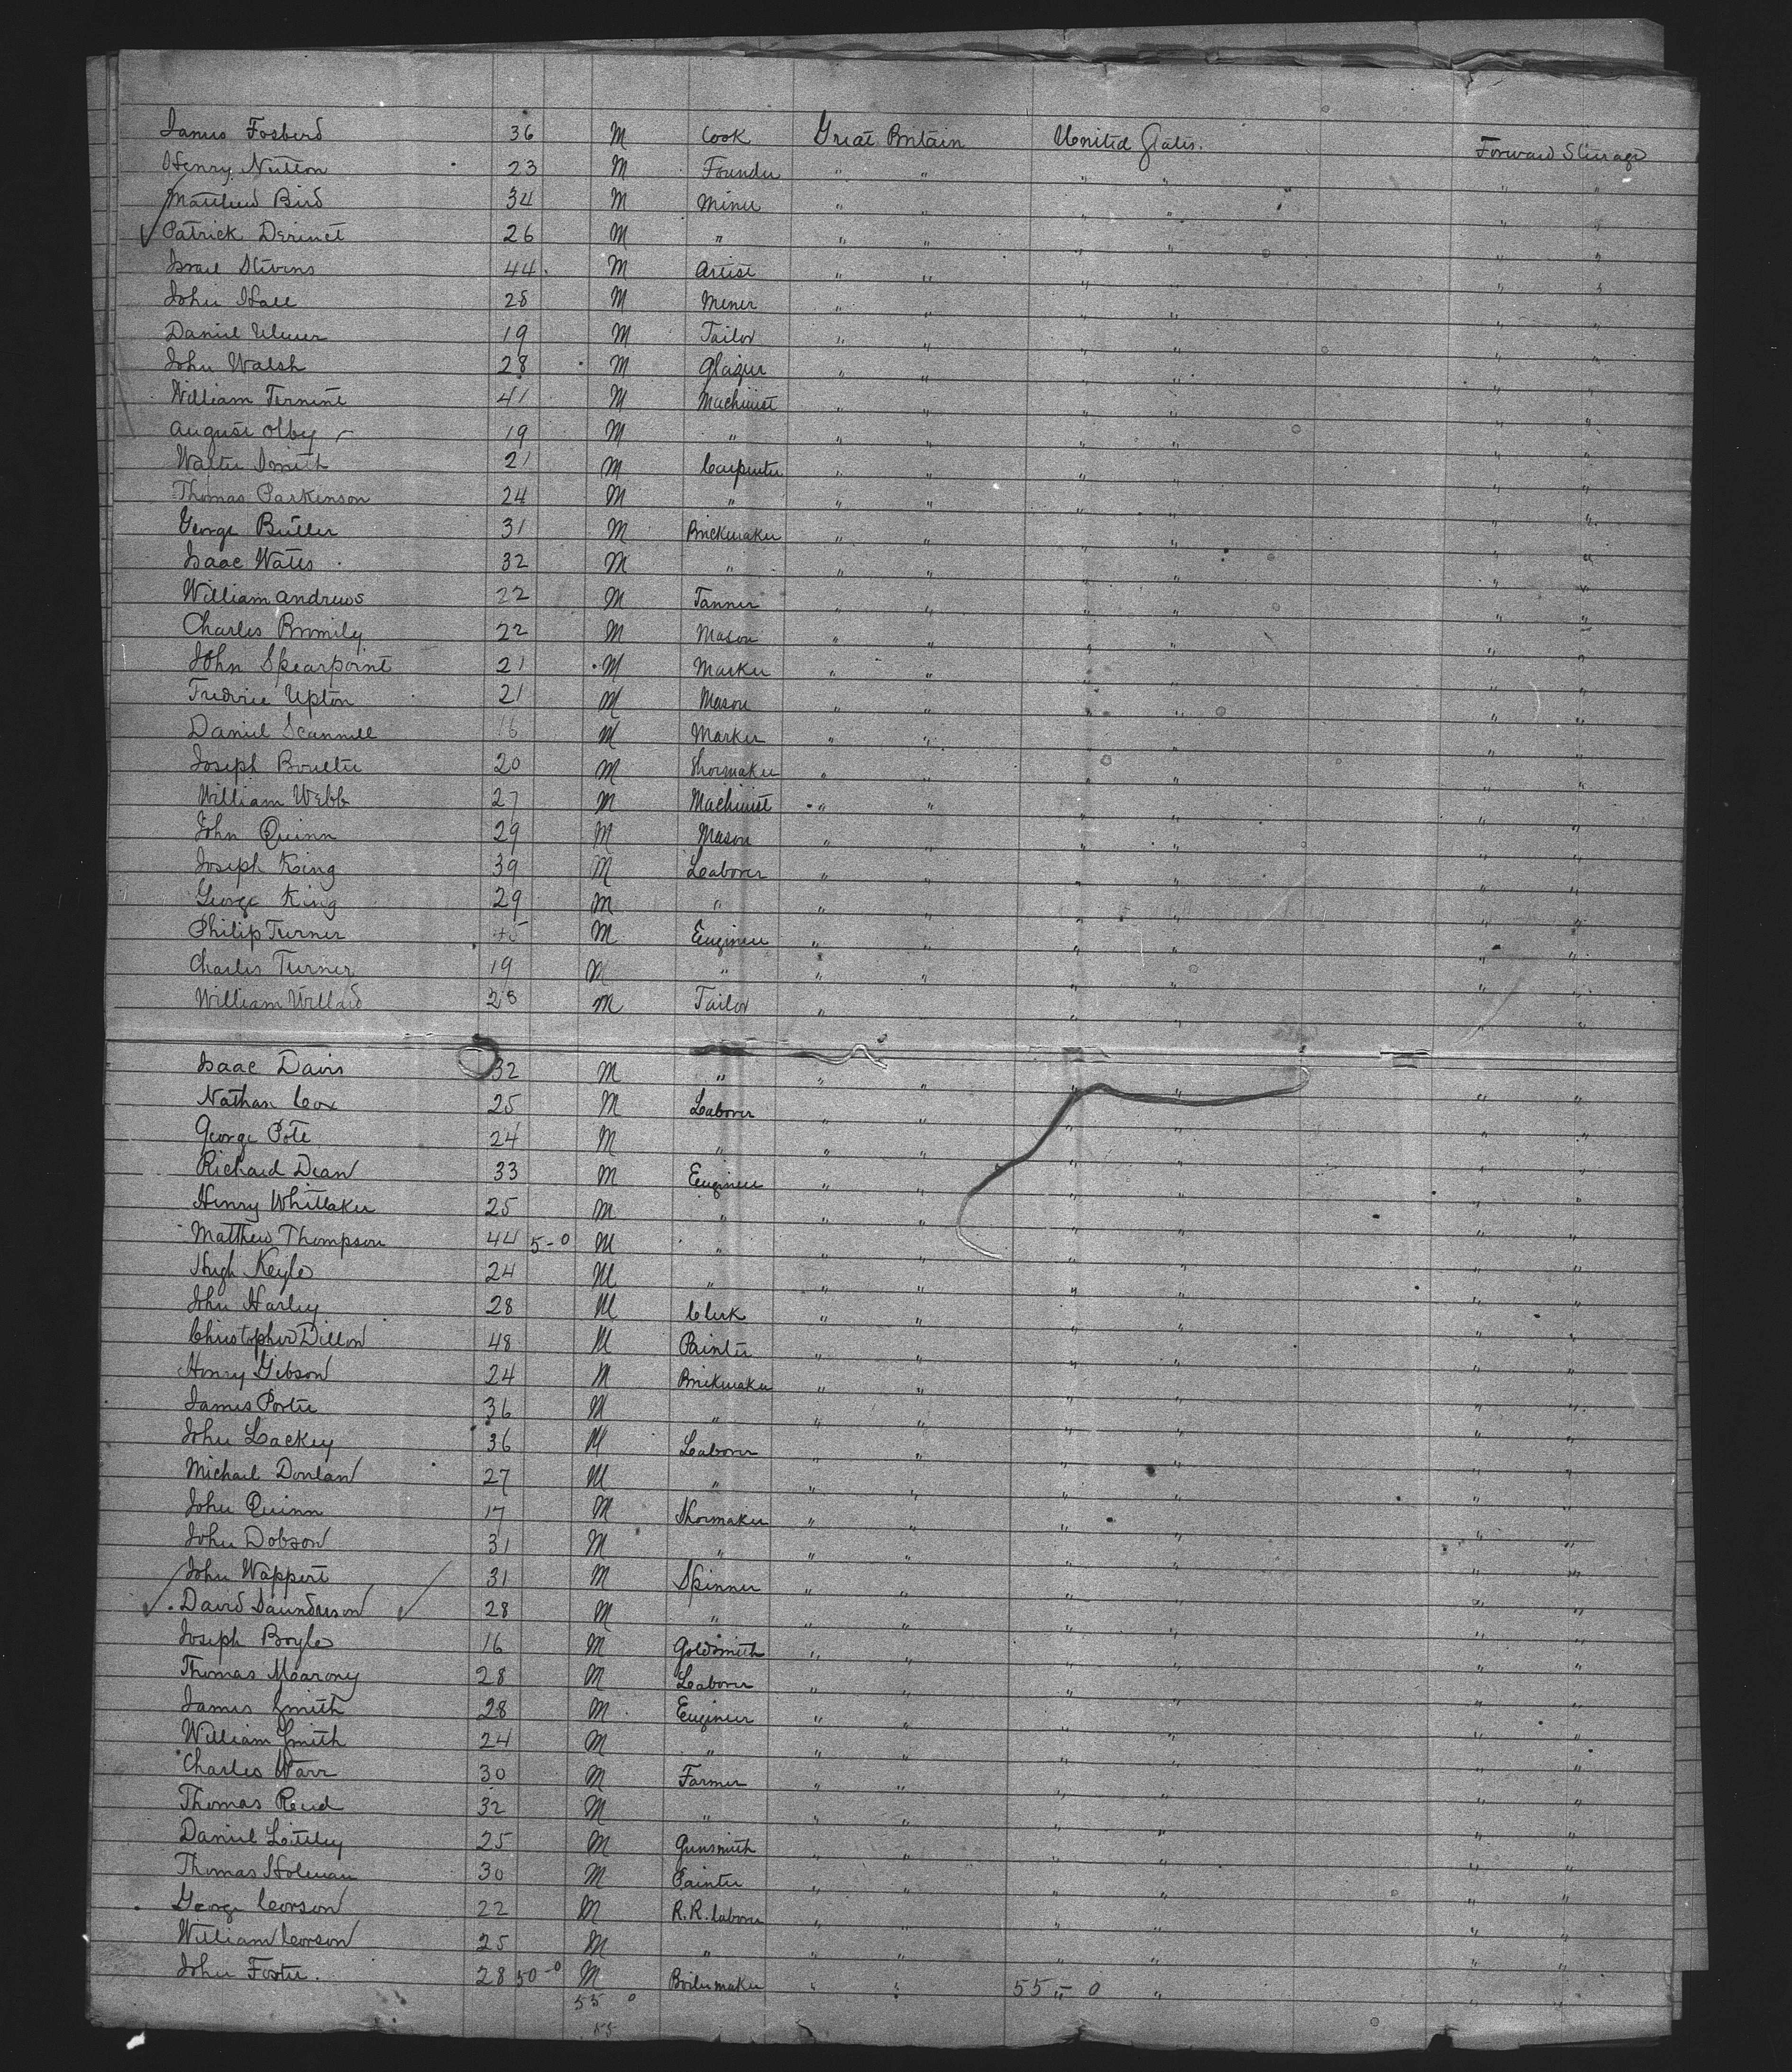 James Fosberd 36 M Cook Great Britain United States. Forward Steerage
Henry Nutton 23 M Founder " " " " " "
Matthew Bird 34 M Miner " " " " " "
Patrick Derinet 26 M " " " " " " "
Israel Stevens 44 M Artist " " " " " "
John Hall 28 M Miner " " " " " "
Daniel Ulmer 19 M Tailor " " " " " "
John Walsh 28 M Glazier " " " " " "
William Ternent 41 M Machinist " " " " " "
August Olby 19 M " " " " " " "
Walter Smith 21 M Carpenter " " " " " "
Thomas Parkinson 24 M " " " " " " "
George Butler 31 M Brickmaker " " " " " "
Isaac Wates 32 M " " " " " " "
William Andrews 22 M Tanner " " " " " "
Charles Bromily 22 M Mason " " " " " "
John Spearpoint 21 M Marker " " " " " "
Fredric Upton 21 M Mason " " " " " "
Daniel Scannell 16 M Marker " " " " " "
Joseph Boulter 20 M Shoemaker " " " " " "
William Webb 27 M Machinist " " " " " "
John Quinn 29 M Mason " " " " " "
Joseph King 39 M Laborer " " " " " "
George King 29 M " " " " " " "
Philip Turner 45 M Engineer " " " " " "
Charles Turner 19 M " " " " " " "
William Willard 28 M Tailor " " " " "
Isaac Davis 32 M " " " " " " "
Nathan Cox 25 M Laborer " " " " " "
George Pote 24 M " " " " " " "
Richard Dean 33 M Engineer " " " " " "
Henry Whittaker 25 M " " " " " " "
Matthew Thompson 44 5-0 M " " " " " " "
Hugh Keyle 24 M " " " " " " "
John Harley 28 M Clerk " " " " " "
Christopher Dillon 48 M Painter " " " " " "
Henry Gibson 24 M Brickmaker " " " " " "
James Porter 36 M " " " " " " "
John Lackey 36 M Laborer " " " " " "
Michael Donlan 27 M " " " " " " "
John Quinn 17 M Shoemaker " " " " " "
John Dobson 31 M " " " " " " "
John Wappert 31 M Spinner " " " " " "
David Saunderson 28 M " " " " " " "
Joseph Boyle 16 M Goldsmith " " " " " "
Thomas Mearony 28 M Laborer " " " " " "
James Smith 28 M Engineer " " " " " "
William Smith 24 M " " " " " " "
Charles Warr 30 M Farmer " " " " " "
Thomas Reed 32 M " " " " " " "
Daniel Littley 25 M Gunsmith " " " " " "
Thomas Holman 30 M Painter " " " " " "
George Corson 22 M R.R. laborer " " " " " "
William Corson 25 M " " " " " " "
John Foster. 28 50-0 M Boilermaker " " 55-0 " " " "
55 0
55